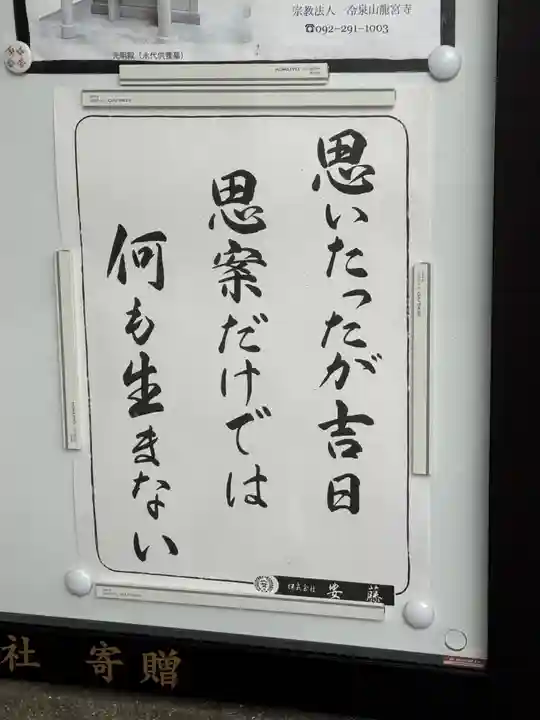 宗教法人　冷泉山龍宮寺
☎092-291-1003
光明殿（永代供養墓）
思いたったが吉日
思案だけでは
何も生まない
株式会社 安藤
社 寄贈